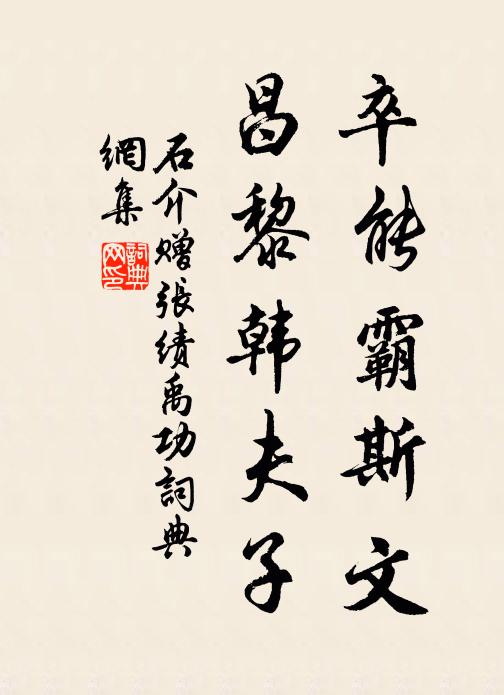 卒能霸斯文
昌黎韩夫子
石介赠張绩禹功詞典
網集
詞典
网印